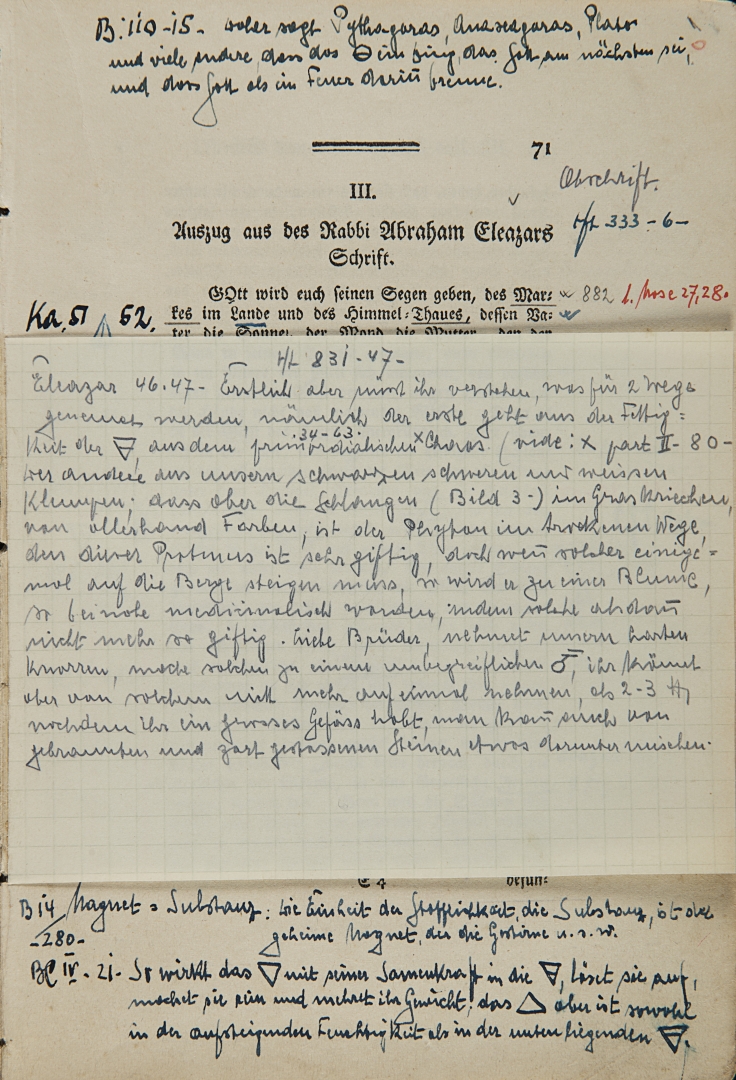 B: 110-15- woher sagt Pythagoras, Anaxagoras, Plato
und viele andere, dass das ding, das Gott am nächsten sei,
und dass Gott als im Feuer darin̄ brenne.
71
Abschrift.
III.
Auszug aus des Rabbi Abraham Eleazars
333-6-
Schrift.
GOtt wird euch seinen Segen geben, des Mar- 882 1. Mose 27,28.
Ka, 51 52. kes im Lande und des Himmel-Thaues, dessen Va-
ter die Sonne, der Mond die Mutter, den der
831-47-
Eleazar 46.47- Erstlich aber müsst ihr verstehen, was für 2 Wege
gemeinet werden, nämlich der erste geht aus der Fettig=
34-63
keit der 🜃, aus dem primordialischen × Chaos. (vide: × part II-80-
der andere aus unsern schwarzen schweren und weissen
Klumpen; dass aber die Schlangen (Bild 3-) im Gras kriechen,
von allerhand Farben, ist der Phyton im trockenen Wege,
den̄ dieser Protheus ist sehr giftig, doch wen̄ solcher einige=
mal auf die Berge steigen muss, so wird er zu einer Blume,
so beinahe medizinalisch worden, indem solche alsdan̄
nicht mehr so giftig. Liebe Brüder, nehmet unsern harten
Knorren, mache solchen zu einem unbegreiflichen ♂, ihr kön̄et
aber von solchem nicht mehr auf einmal nehmen, als 2-3 ℔,
nachdem ihr ein grosses Gefäss habt, man kan̄ auch von
gebran̄ten und zart gestossenen Steinen etwas darunter mischen.
E 4 besun-
B 14 Magnet = Substanz: Die Einheit der Stofflichkeit, die Substanz, ist der
-280- geheime Magnet, der die Gestirne u.s.w.
IV - 21- So wirkt das 🜄 mit seiner Samenkraft in die 🜃, löset sie auf,
machet sie rein und mehret ihr Gewicht; das △ aber ist sowohl
in der aufsteigenden Feuchtigkeit als in der unten liegenden 🜃.